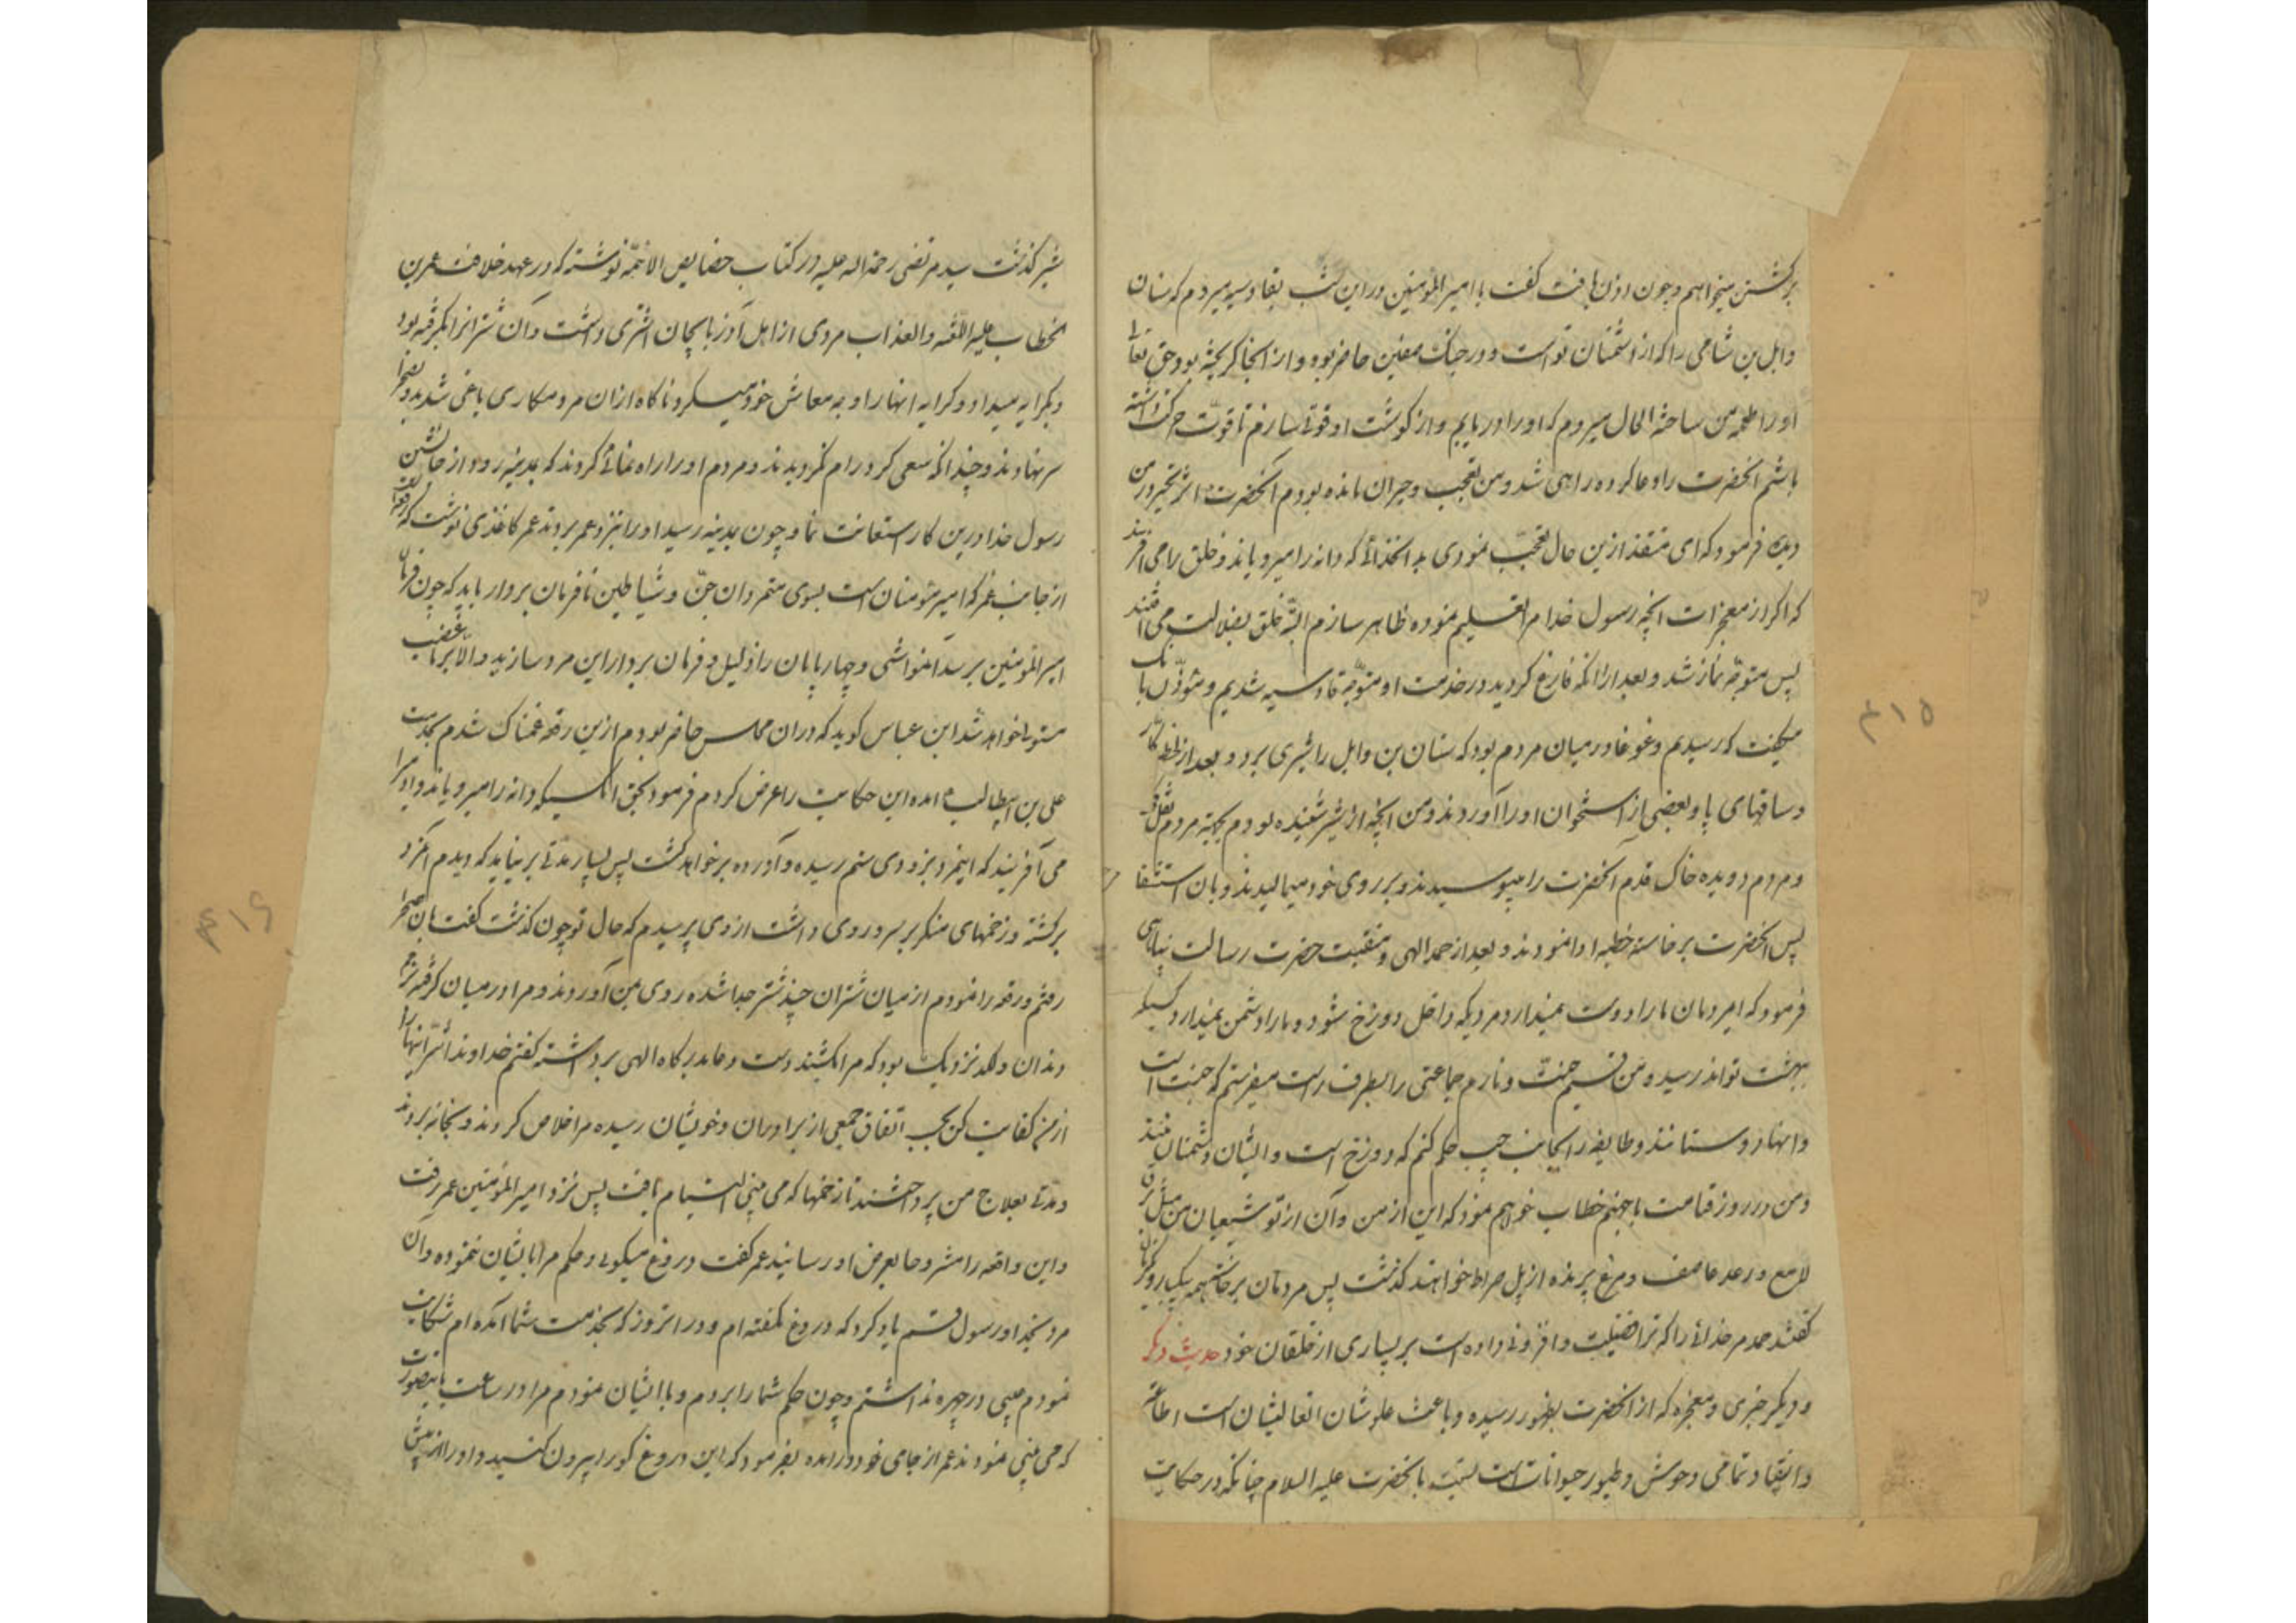 برکشتن میخواهم و چون اذن یافت کفت یا امیر المؤمنین در این شب بقادسیه میروم که سنان
وابل بن شامی را که از دشمنان تو است و در جنک صفین حاضر بود و از انجا کریخته بود حق تعالی
او را طعمه من ساخته الحال میروم که او را دریابم و از کوشت او قوتی سازم تا قوت حرکت داشته
باشم انحضرت را دعا کرده راهی شد و من متعجب و حیران مانده بودم انحضرت اثر تحیر در من
دیده فرمود که ای منقذ ازین حال تعجب نمودی به انخدائی که دانه را میرویاند و خلق را می افریند
که اکر از معجزات انچه رسول خدا مرا تعلیم نموده ظاهر سازم البته خلق بضلالت می افتند
پس متوجه نماز شد و بعد از انکه فارغ کردید در خدمت او متوجه قادسیه شدیم و مؤذن بانک
میکفت که رسیدیم و غوغا در میان مردم بود که سنان بن وابل را شیری برد و بعد از لحظه
و ساقهای پا و بعضی از استخوان او را آوردند و من انچه از شیر شنیده بودم بجهة مردم نقل
و مردم دویده خاک قدم آنحضرت را میبوسیدند و بر روی خود میمالیدند و بان استشفا
پس انحضرت برخاسته خطبه ادا نمودند و بعد از حمد الهی و منقبت حضرت رسالت پناهی
فرمود که ایمردمان ما را دوست نمیدارد مردیکه داخل دوزخ شود و ما را دشمن نمیدارد کسیکه
ببهشت تواند رسید و من قسیم جنت و نارم جماعتی را بطرف راست میفرستم که جنت است
و اینها دوستانند و طایفه را بجانب چپ حکم کنم که دوزخ است و ایشان دشمنان منند
و من در روز قیامت با جهنم خطاب خواهم نمود که این از من و آن از تو شیعیان من مثل برق
لامع و رعد عاصف و مرغ پرنده از پل صراط خواهند کذشت پس مردمان برخاستند همه بیکبار
کفتند حمد مر خدائی را که ترا فضیلت و افزونی داده است بر بسیاری از خلقان خود حدیث دیکر
و دیکر خبری و معجزه که از انحضرت بظهور رسیده و باعث علو شان انعالیشان است اطاعت
و انقیاد تمامی وحوش و طیور حیوانات است نسبت بانحضرت علیه السلام چنانکه در حکایت
شیر کذشت سید مرتضی رحمة اله علیه در کتاب خصایص الائمه نوشته که در عهد خلافت عمر بن
الخطاب علیه اللعنه والعذاب مردی از اهل آذربایجان اشتری داشت و آن شتر انرا بکرفته بود
و بکرایه میداد و کرایه انها را وجه معاش خود میکرد ناکاه از ان مرد مکاری یاغی شدند و بصحرا
سر نهادند و چندانکه سعی کرد رام نکردیدند و مردم او را راه نمائی کردند که بمدینه رود و از جانشین
رسول خدا درین کار استعانت نماید چون بمدینه رسید او را بنزد عمر بردند عمر کاغذی نوشت که
از جانب عمر که امیر مؤمنان است بسوی متمردان جن و شیاطین نافرمان بردار باید که چون فرمان
امیر المؤمنین برسد انمواشی و چهارپایان را ذلیل و فرمان بردار این مرد سازید والا غضب
متوجه خواهد شد ابن عباس کوید که در ان مجلس حاضر بودم ازین رقعه غمناک شدم بخدمت
علی بن ابیطالب ع امده این حکایت را عرض کردم فرمود بحق انکسیکه دانه را میرویاند و ادم را
می آفریند که اینمرد بزودی ستم رسیده و آزرده برخواهد کشت پس بسیار مدتی برنیاید که دیدم انمرد
برکشته و زخمهای منکر بر سر و روی داشت از وی پرسیدم که حال تو چون کذشت کفت بان صحرا
رفتم و رقعه را نمودم از میان شتران چند شتر جدا شده روی بمن آوردند و مرا در میان کرفته زخم
دندان و لکد نزدیک بود که مرا بکشند دست دعا بدرکاه الهی برداشته کفتم خداوندا شر اینها را
از من کفایت کن بحسب اتفاق جمعی از برادران و خویشان رسیده مرا خلاص کردند و بخانه بردند
و مدتی بعلاج من پرداختند تا زخمها که می بینی التیام یافت پس نزد امیر المؤمنین عمر رفت
و این واقعه را مشروحا بعرض او رسانید عمر کفت دروغ میکوئی و حکم مرا بایشان ننموده و آن
مرد بخدا و رسول قسم یاد کرد که دروغ نکفته ام و در انروز که بخدمت شما آمده ام شکایت
نمودم عیبی در چهره نداشتم و چون حکم شما را بردم و با ایشان نمودم مرا در ساعت باینصورت
که می بینی نمودند عمر از جای خود در امده بفرمود که این دروغ کو را بیرون کنید و او را از پیش
۴۱۵
۴۱۶